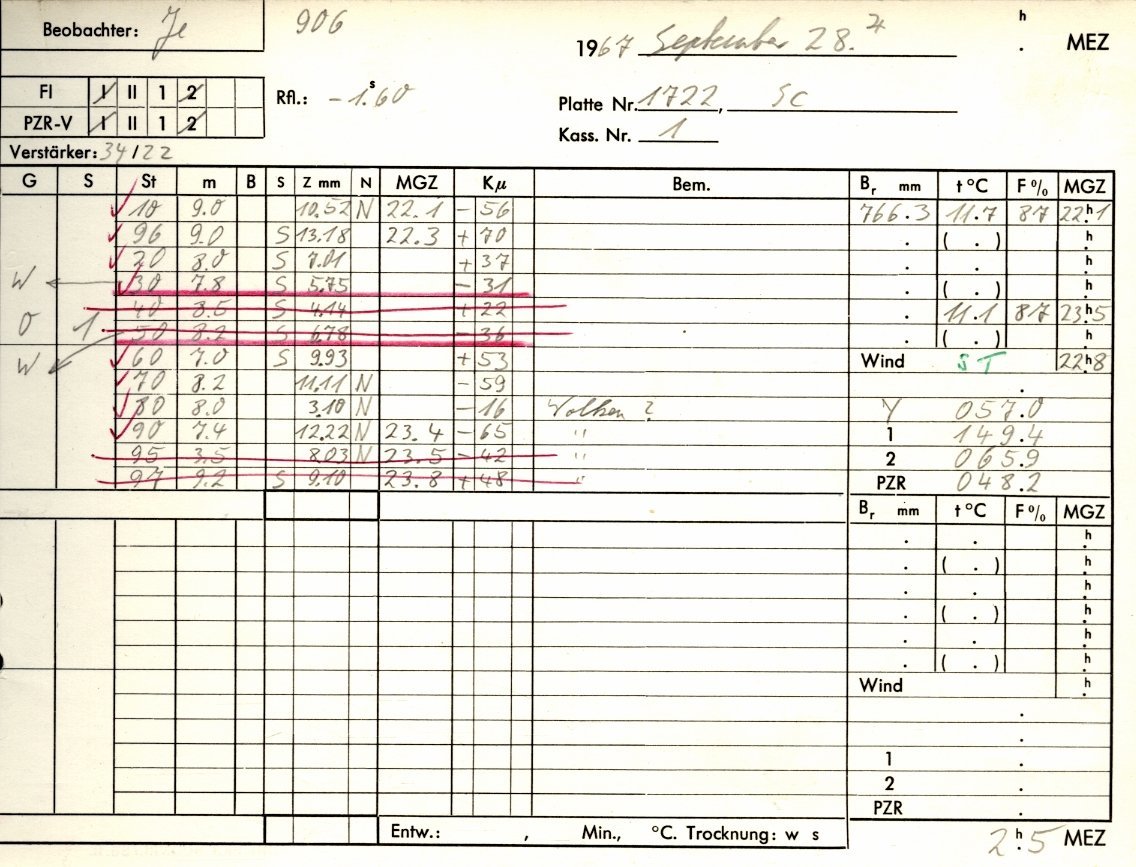 Beobachter: Je 906
1967 September 28. h . MEZ
FI I II 1 2 Rfl.: -1.s60 Platte Nr. 1722, Sc
PZR-V I II 1 2 Kass. Nr. 1
Verstärker: 34/22
G S St m B S Z mm N MGZ Kµ Bem. Br mm t °C F % MGZ
10 9.0 10.52 N 22.1 - 56 766.3 11.7 87 22h1
96 9.0 S 13.18 22.3 + 70 . ( . ) h.
20 8.0 S 7.01 + 37 . . h.
W 30 7.8 S 5.75 - 31 . ( . ) h.
40 8.5 S 4.14 + 22 . 11.1 87 23h5
0 1 50 8.2 S 6.78 - 36 . ( . ) h.
W 60 7.0 S 9.93 + 53 Wind ST 22h8
70 8.2 11.11 N - 59 .
80 8.0 3.10 N - 16 Wolken ? Y 057.0
90 7.4 12.22 N 23.4 - 65 " 1 149.4
95 3.5 8.03 N 23.5 - 42 " 2 065.9
97 9.2 S 9.10 23.8 + 48 " PZR 048.2
Br mm t °C F % MGZ
. . h.
. ( . ) h.
. . h.
. ( . ) h.
. . h.
. ( . ) h.
Wind h.
.
.
1 .
2 .
PZR .
Entw.: , Min., °C. Trocknung: w s
2h.5 MEZ